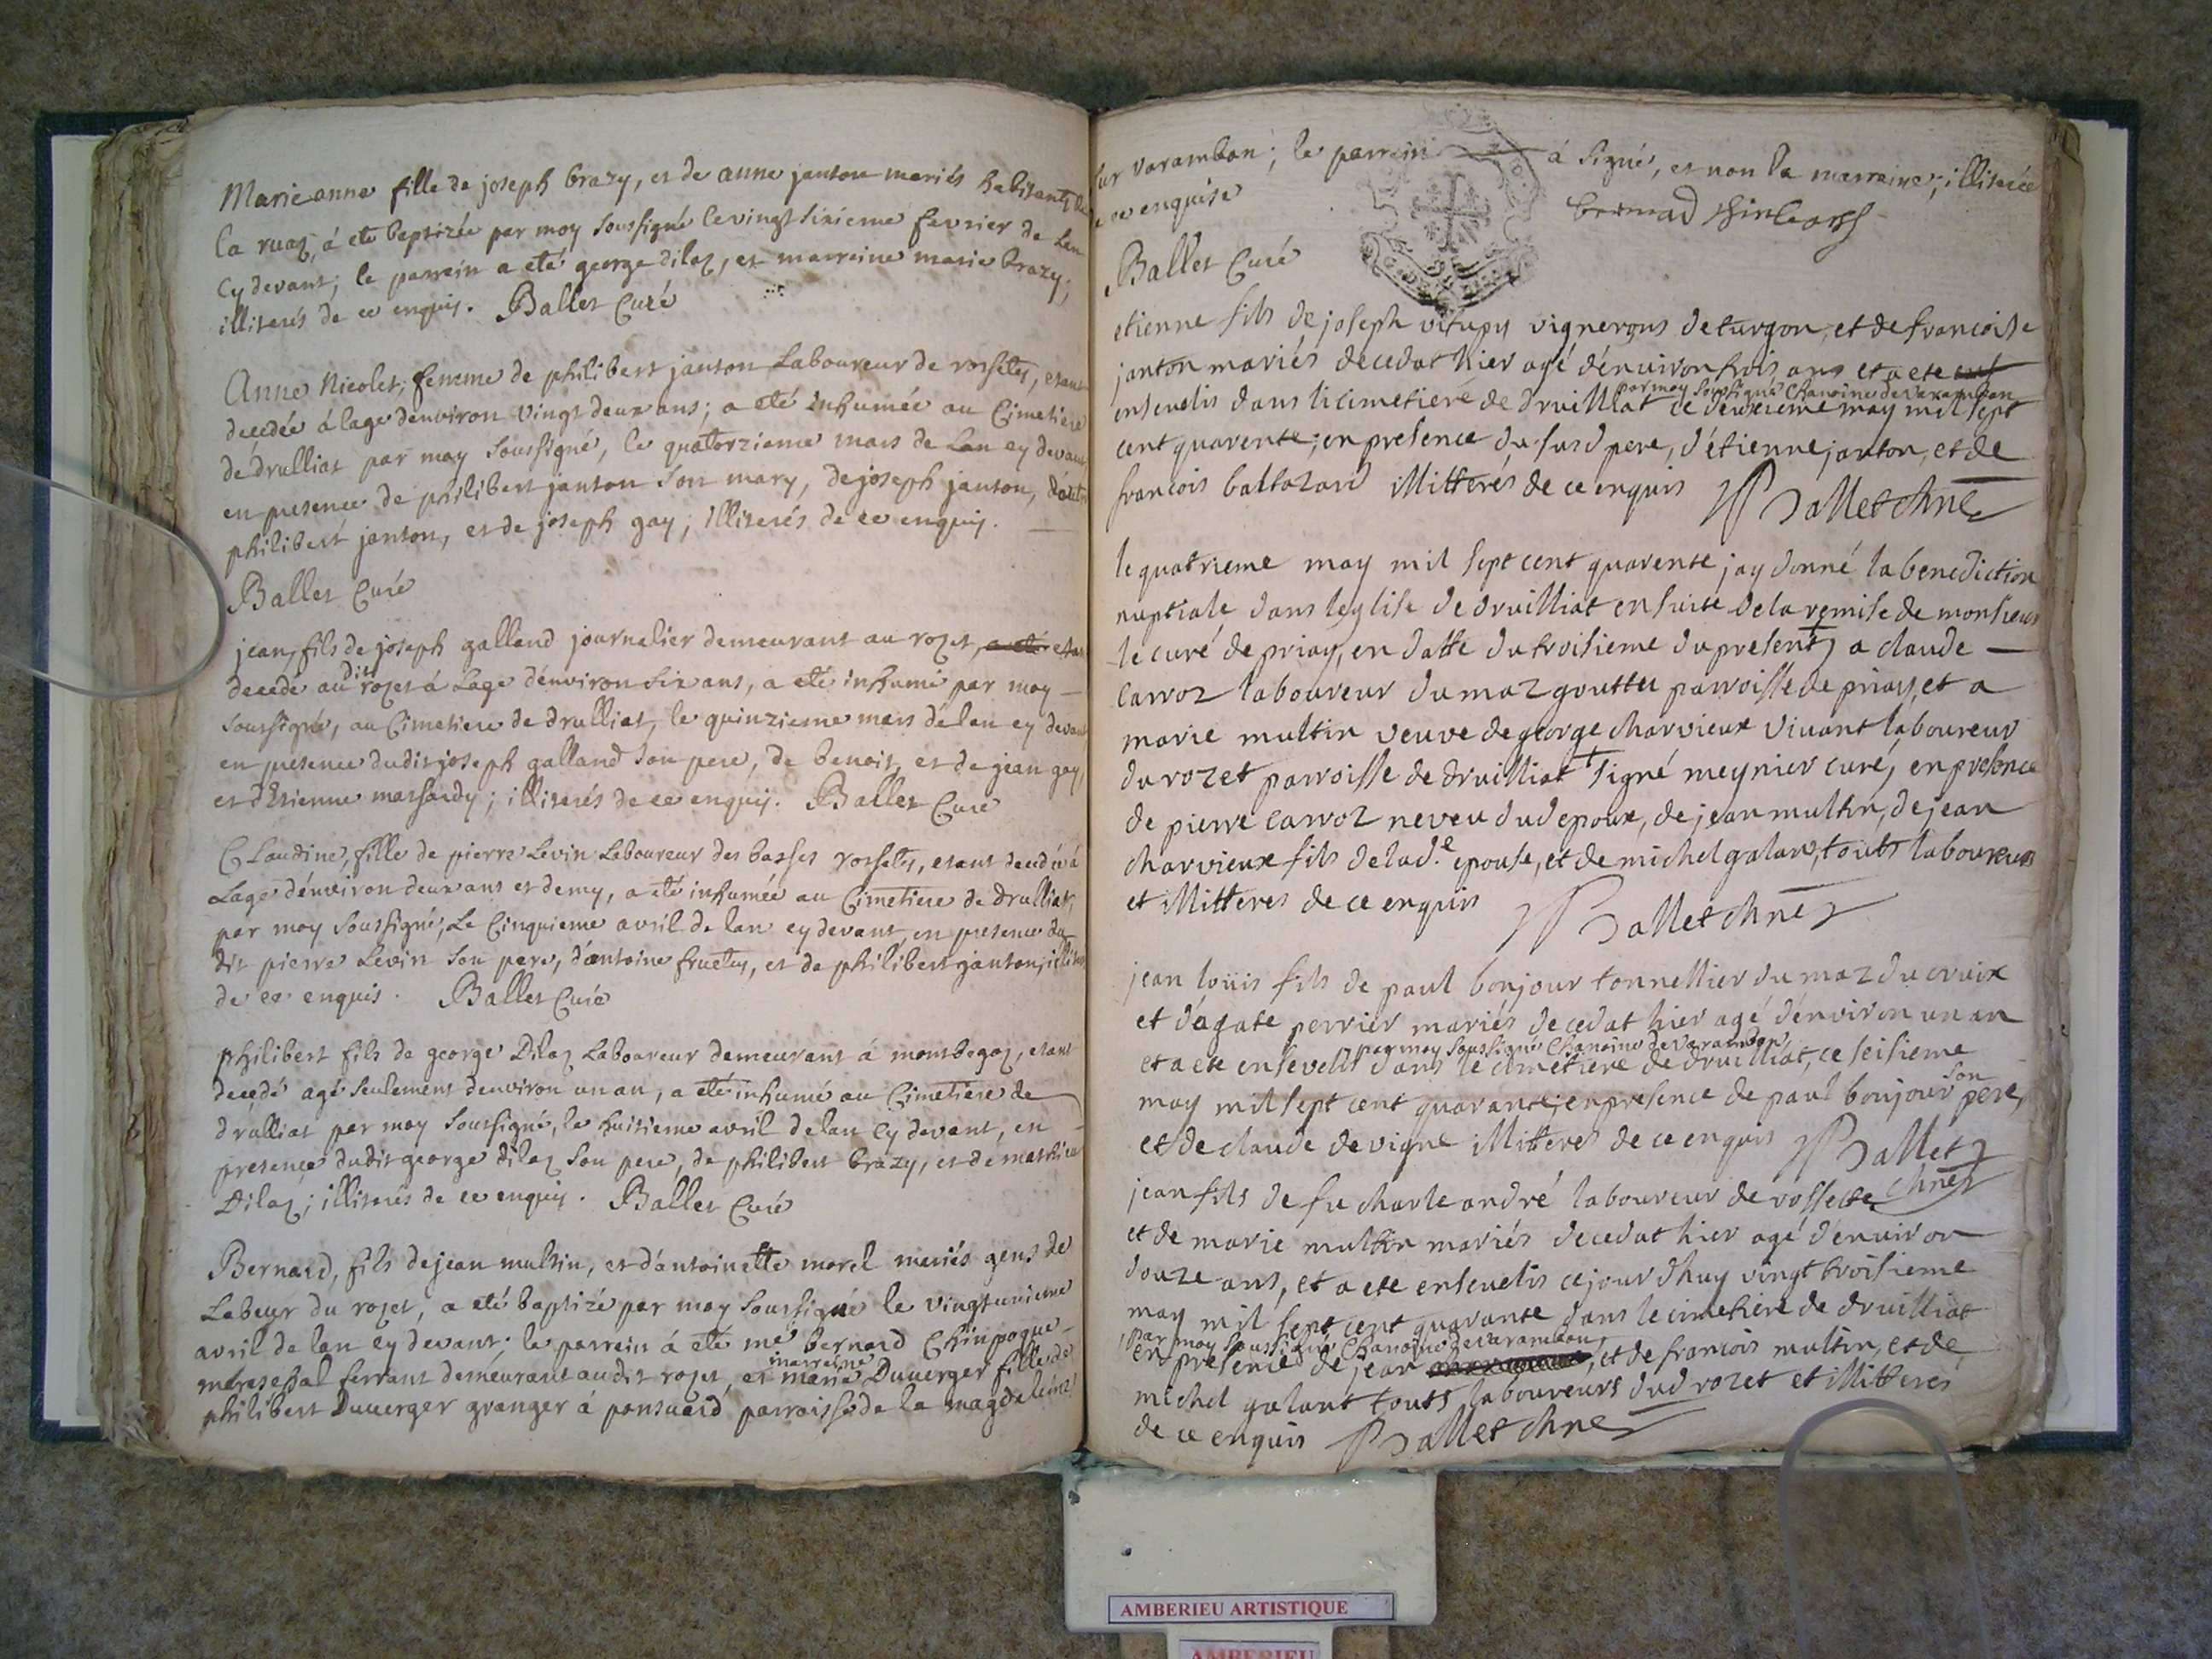 Marie anne fille de joseph brazy, et de anne janton mariés habitants de
la ruaz, á eté baptizée par moy soussigné le vingt sixieme fevrier de Lan
cy devant; le parrein a eté george dilaz, et marreine marie brazy;
illiterés de ce enquis. Ballet Curé
Anne Nicolet, femme de philibert janton Laboureur de rossettes, etant
decedée á lage denviron vingt deux ans; a eté inhumée au Cimetiere
de drulliat par moy soussigné, le quatorzieme mars de Lan cy devant
en presence de philibert janton son mary, de joseph janton, d'autre
philibert janton, et de joseph gay; illiterés de ce enquis.
Ballet Curé
jean, fils de joseph galland journalier demeurant au rozet, a eté etant
decedé au dit rozet á Lage d'environ six ans, a eté inhumé par moy
soussigné, au Cimetiere de drulliat, le quinzieme mars de lan cy devant
en presence dudit joseph galland son pere, de benoit, et de jean gay,
et d'Etienne massardy; illiterés de ce enquis. Ballet Curé
Claudine, fille de pierre Levin Laboureur des basses rossettes, etant decedée á
Lage d'environ deux ans et demy, a eté inhumée au Cimetiere de drulliat,
par moy soussigné, Le Cinquieme avril de lan cy devant, en presence du
dit pierre Levin son pere, d'antoine fruitey, et de philibert janton; illiterés
de ce enquis. Ballet Curé
philibert fils de george Dilaz Laboureur demeurant á montdegoz, etant
decedé agé seulement denviron un an, a eté inhumé au Cimetiere de
drulliat par moy soussigné, le huitieme avril de lan cy devant, en
presence dudit george dilaz son pere, de philibert brazy, et de mathieu
Dilaz; illiterés de ce enquis. Ballet Curé
Bernard, fils de jean multin, et d'antoinette morel mariés gens de
Labeur du rozet, a eté baptizé par moy soussigné le vingt unieme
avril de lan cy devant; le parrein á eté me bernard Chinpogue
mareschal ferrant demeurant au dit rozet, et marreine marie Duverger fille de
philibert Duverger granger á ponsuard, parroisse de la magdeleine
sur varambon; le parrein á signé, et non la marreine; illiterée
de ce enquise
Ballet Curé
etienne fils de joseph vitupy vignerons de turgon, et de francoise
janton mariés decedat hier agé d'environ trois ans et a ete
ensevelis dans li cimetiere de druilliat par moy soussigné Chanoine de Varambon ce deuxieme may mil sept
cent quarente; en presence du susd pere, d'étienne janton, et de
francois baltazard illitterés de ce enquis Ballet chne
le quatrieme may mil sept cent quarente jay donné la benediction
nuptiale dans leglise de druilliat ensuite de la remise de monsieur
le curé de priay, en datte du troisieme du present, a claude
carroz laboureur du maz gouttes parroisse de priay, et a
marie multin veuve de george charvieux vivant laboureur
du rozet parroisse de druilliat + signé meynier curé, en presence
de pierre carroz neveu dud epoux, de jean multin, de jean
charvieux fils de lad.e epouse, et de michel galan, touts laboureurs
et illitteres de ce enquis
Ballet chne
jean loüis fils de paul bonjour tonnellier du maz du cruix
et d'agate perrier mariés decedat hier agé d'environ un an
et a ete ensevelit par moy soussigné Chanoine de Varambon dans le cimetiere de druilliat, ce seisieme
may mil sept cent quarante; en presence de paul bonjour son pere,
et de claude devigne illitteres de ce enquis Ballet
chne
jean fils de fu charle andré laboureur de rossette
et de marie multin mariés decedat hier agé d'environ
douze ans, et a ete ensevelis ce jour dhuy vingt troisieme
may mil sept cent quarante dans le cimetiere de druilliat
par moy soussigné Chanoine de Varambon
en presence de jean, et de francois multin, et de
michel galant touts laboureurs dud rozet et illitterés
de ce enquis Ballet chne
AMBERIEU ARTISTIQUE
AMBERIEU